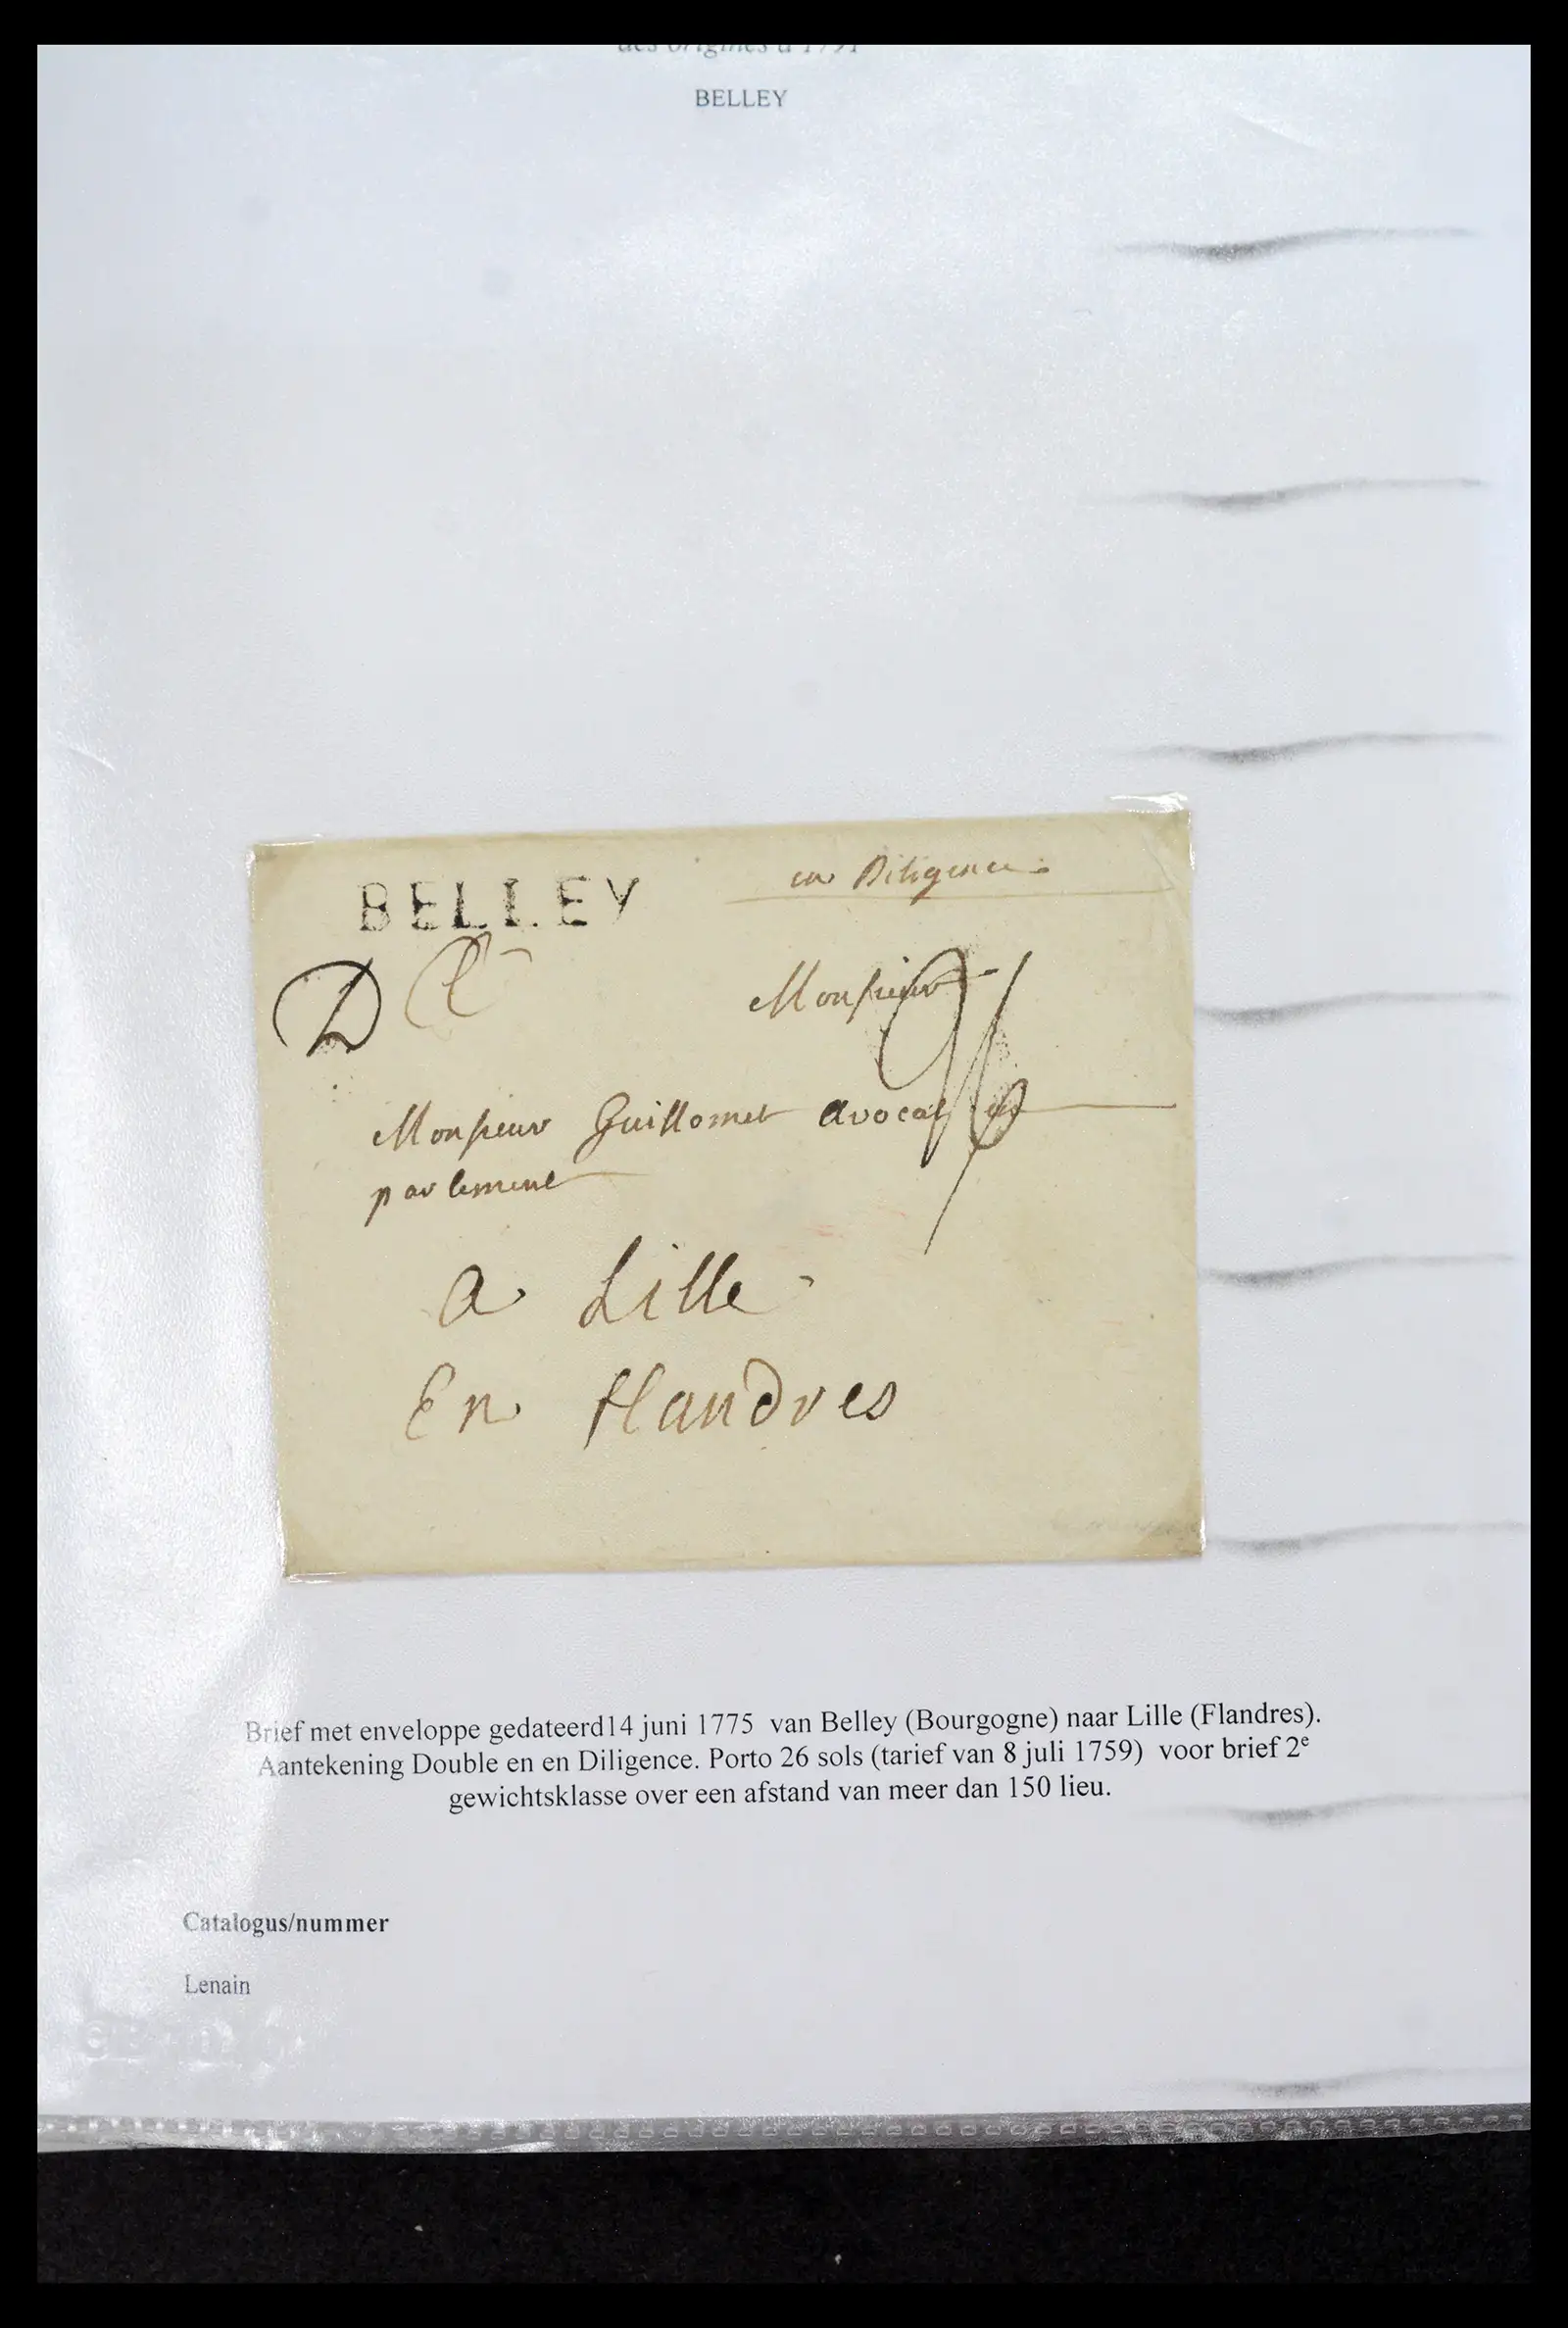 des origines à 1791
BELLEY
en Diligence
BELLEY
D
Monsieur
26
Monsieur Guillomet avocat en
parlement
a Lille
En flandres
Brief met enveloppe gedateerd14 juni 1775 van Belley (Bourgogne) naar Lille (Flandres).
Aantekening Double en en Diligence. Porto 26 sols (tarief van 8 juli 1759) voor brief 2e
gewichtsklasse over een afstand van meer dan 150 lieu.
Catalogus/nummer
Lenain